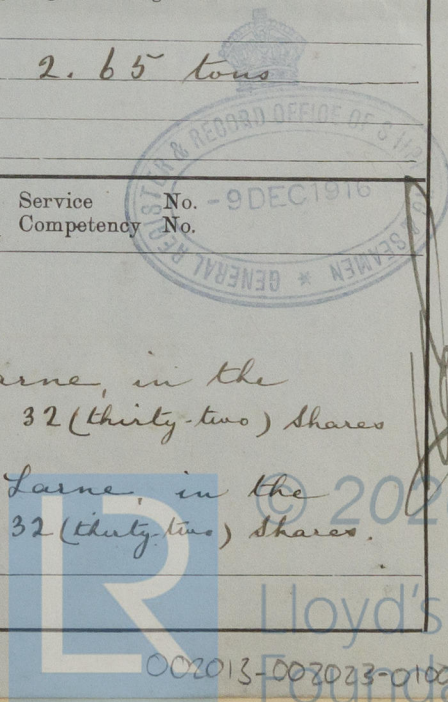 2. 65 tons
GENERAL REGISTER & RECORD OFFICE OF SHIPPING & SEAMEN *
- 9 DEC 1916
Service No.
Competency No.
arne, in the
32 (thirty-two) Shares
Larne, in the
32 (thirty-two) Shares.
© 202
Lloyd's
Founda
002013-002023-0100
LR